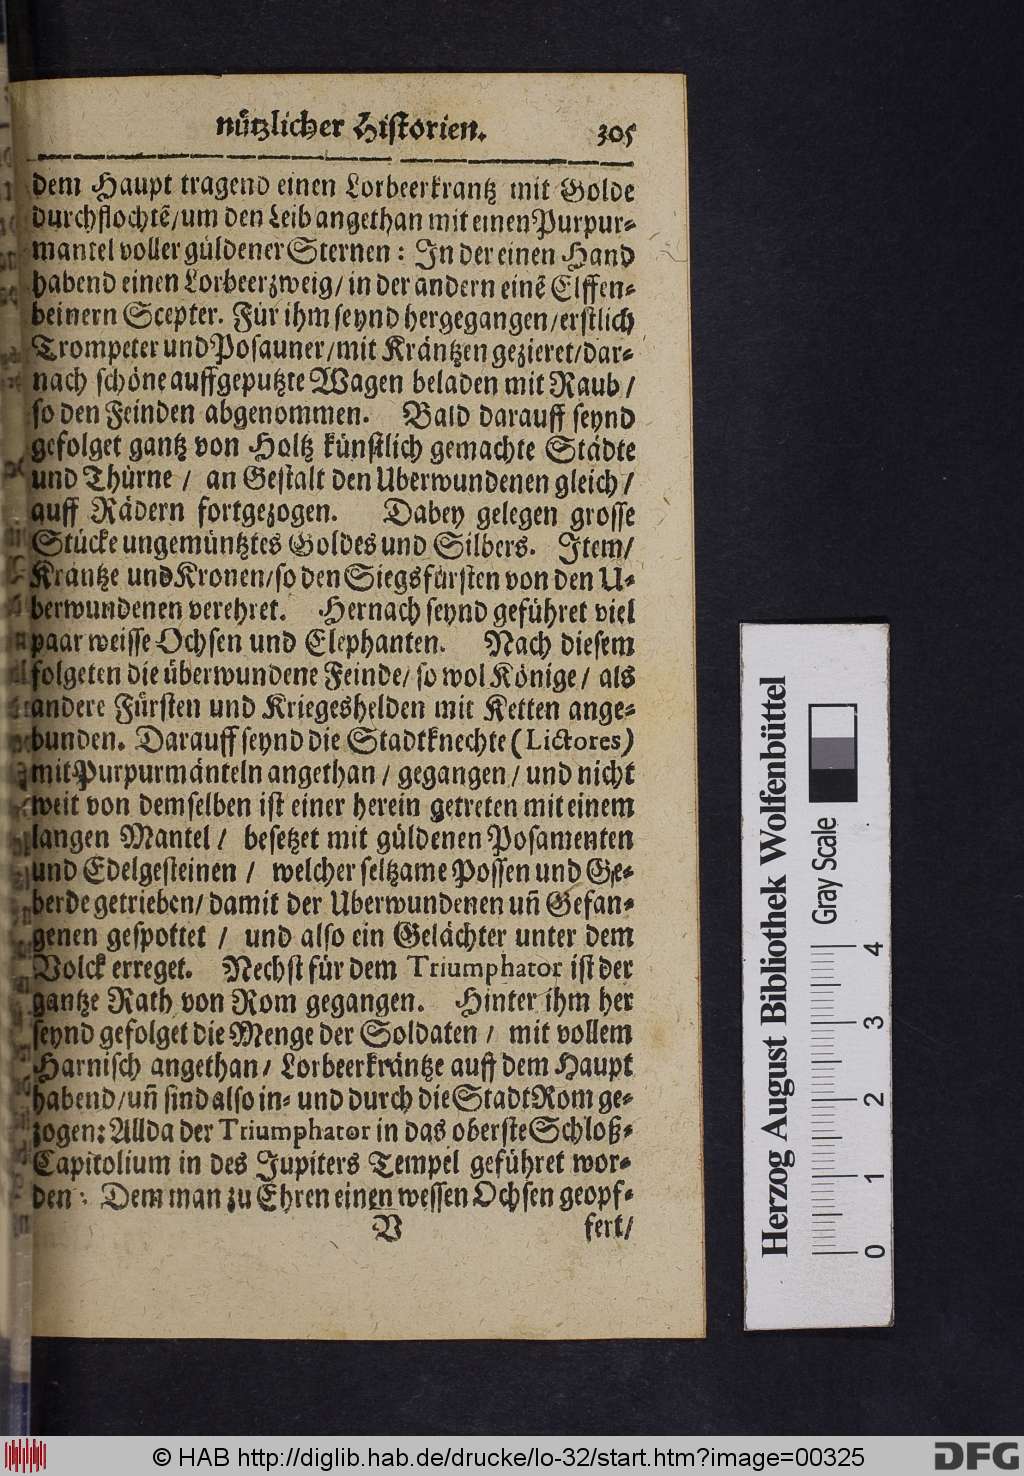 nützlicher Historien. 305
dem Haupt tragend einen Lorbeerkrantz mit Golde
durchflochtẽ/um den Leib angethan mit einen Purpur-
mantel voller güldener Sternen: In der einen Hand
habend einen Lorbeerzweig/ in der andern einẽ Elffen-
beinern Scepter. Für ihm seynd hergegangen/erstlich
Trompeter und Posauner/mit Kräntzen gezieret/dar-
nach schöne auffgeputzte Wagen beladen mit Raub/
so den Feinden abgenommen. Bald darauff seynd
gefolget gantz von Holtz künstlich gemachte Städte
und Thürne/ an Gestalt den Uberwundenen gleich/
auff Rädern fortgezogen. Dabey gelegen grosse
Stücke ungemüntztes Goldes und Silbers. Item/
Kräntze und Kronen/so den Siegsfürsten von den U-
berwundenen verehret. Hernach seynd geführet viel
paar weisse Ochsen und Elephanten. Nach diesem
folgeten die überwundene Feinde/ so wol Könige/ als
andere Fürsten und Kriegeshelden mit Ketten ange-
bunden. Darauff seynd die Stadtknechte (Lictores)
mit Purpurmänteln angethan/ gegangen/ und nicht
weit von demselben ist einer herein getreten mit einem
langen Mantel/ besetzet mit güldenen Posamenten
und Edelgesteinen/ welcher seltzame Possen und Ge-
berde getrieben/ damit der Uberwundenen uñ Gefan-
genen gespottet/ und also ein Gelächter unter dem
Volck erreget. Nechst für dem Triumphator ist der
gantze Rath von Rom gegangen. Hinter ihm her
seynd gefolget die Menge der Soldaten/ mit vollem
Harnisch angethan/ Lorbeerkräntze auff dem Haupt
habend/uñ sind also in- und durch die Stadt Rom ge-
zogen: Allda der Triumphator in das oberste Schloß-
Capitolium in des Jupiters Tempel geführet wor-
den: Dem man zu Ehren einen weissen Ochsen geopf-
V fert/
Herzog August Bibliothek Wolfenbüttel
Gray Scale
0 1 2 3 4
© HAB http://diglib.hab.de/drucke/lo-32/start.htm?image=00325
DFG